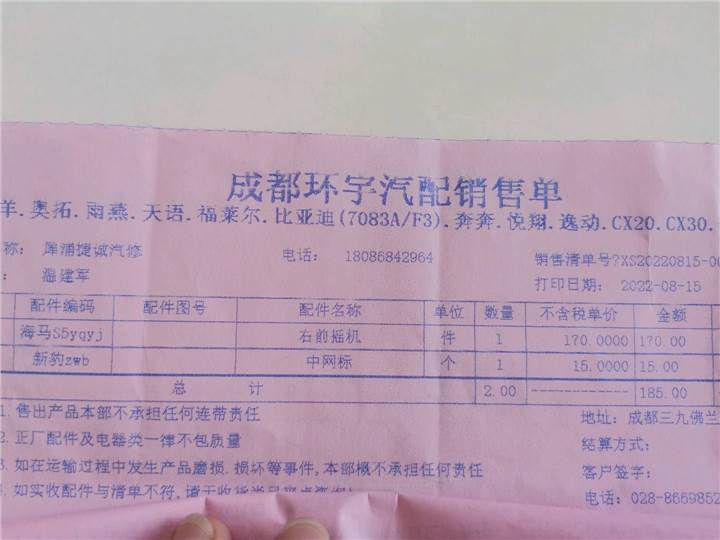 成都环宇汽配销售单
羊.奥拓.雨燕.天语.福莱尔.比亚迪(7083A/F3).奔奔.悦翔.逸动.CX20.CX30.
称: 犀浦捷诚汽修 电话: 18086842964 销售清单号?XS20220815-00
: 温建军 打印日期: 2022-08-15
配件编码 配件图号 配件名称 单位 数量 不含税单价 金额
海马S5yqyj 右前摇机 件 1 170.0000 170.00
新豹zwb 中网标 个 1 15.0000 15.00
总 计 2.00 ------------- 185.00
1. 售出产品本部不承担任何连带责任 地址: 成都三九佛兰
2. 正厂配件及电器类一律不包质量 结算方式:
3. 如在运输过程中发生产品磨损.损坏等事件,本部概不承担任何责任 客户签字:
4. 如实收配件与清单不符,请于收货当日 电话: 028-8669852